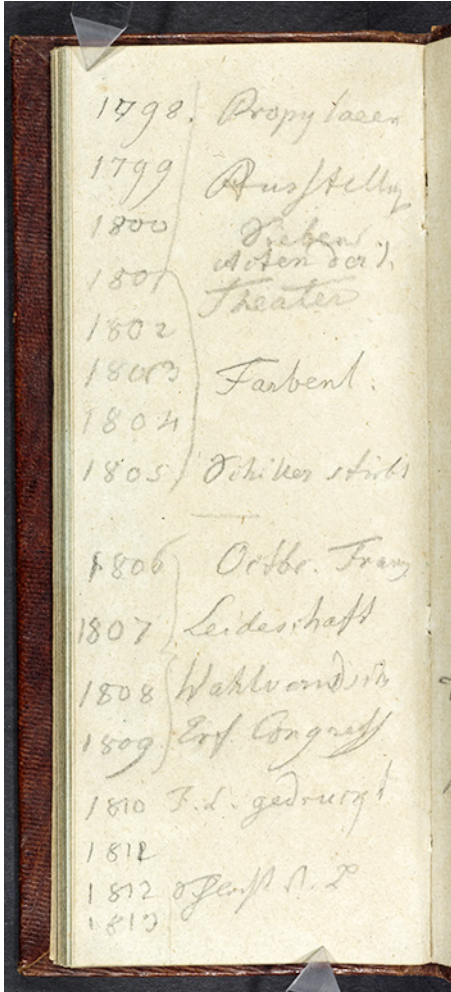 1798. Propylaeen
1799 Ausstellg
1800 Sieben
1801
Theater
1802
1803 Farbenl.
1804
1805 Schiller stirbt
1806 Octbr. Franz
1807 Leideschaft
1808 Wahlverwdsch
1809 Erf. Congress
1810 F. L. gedruckt
1811
1812
1813